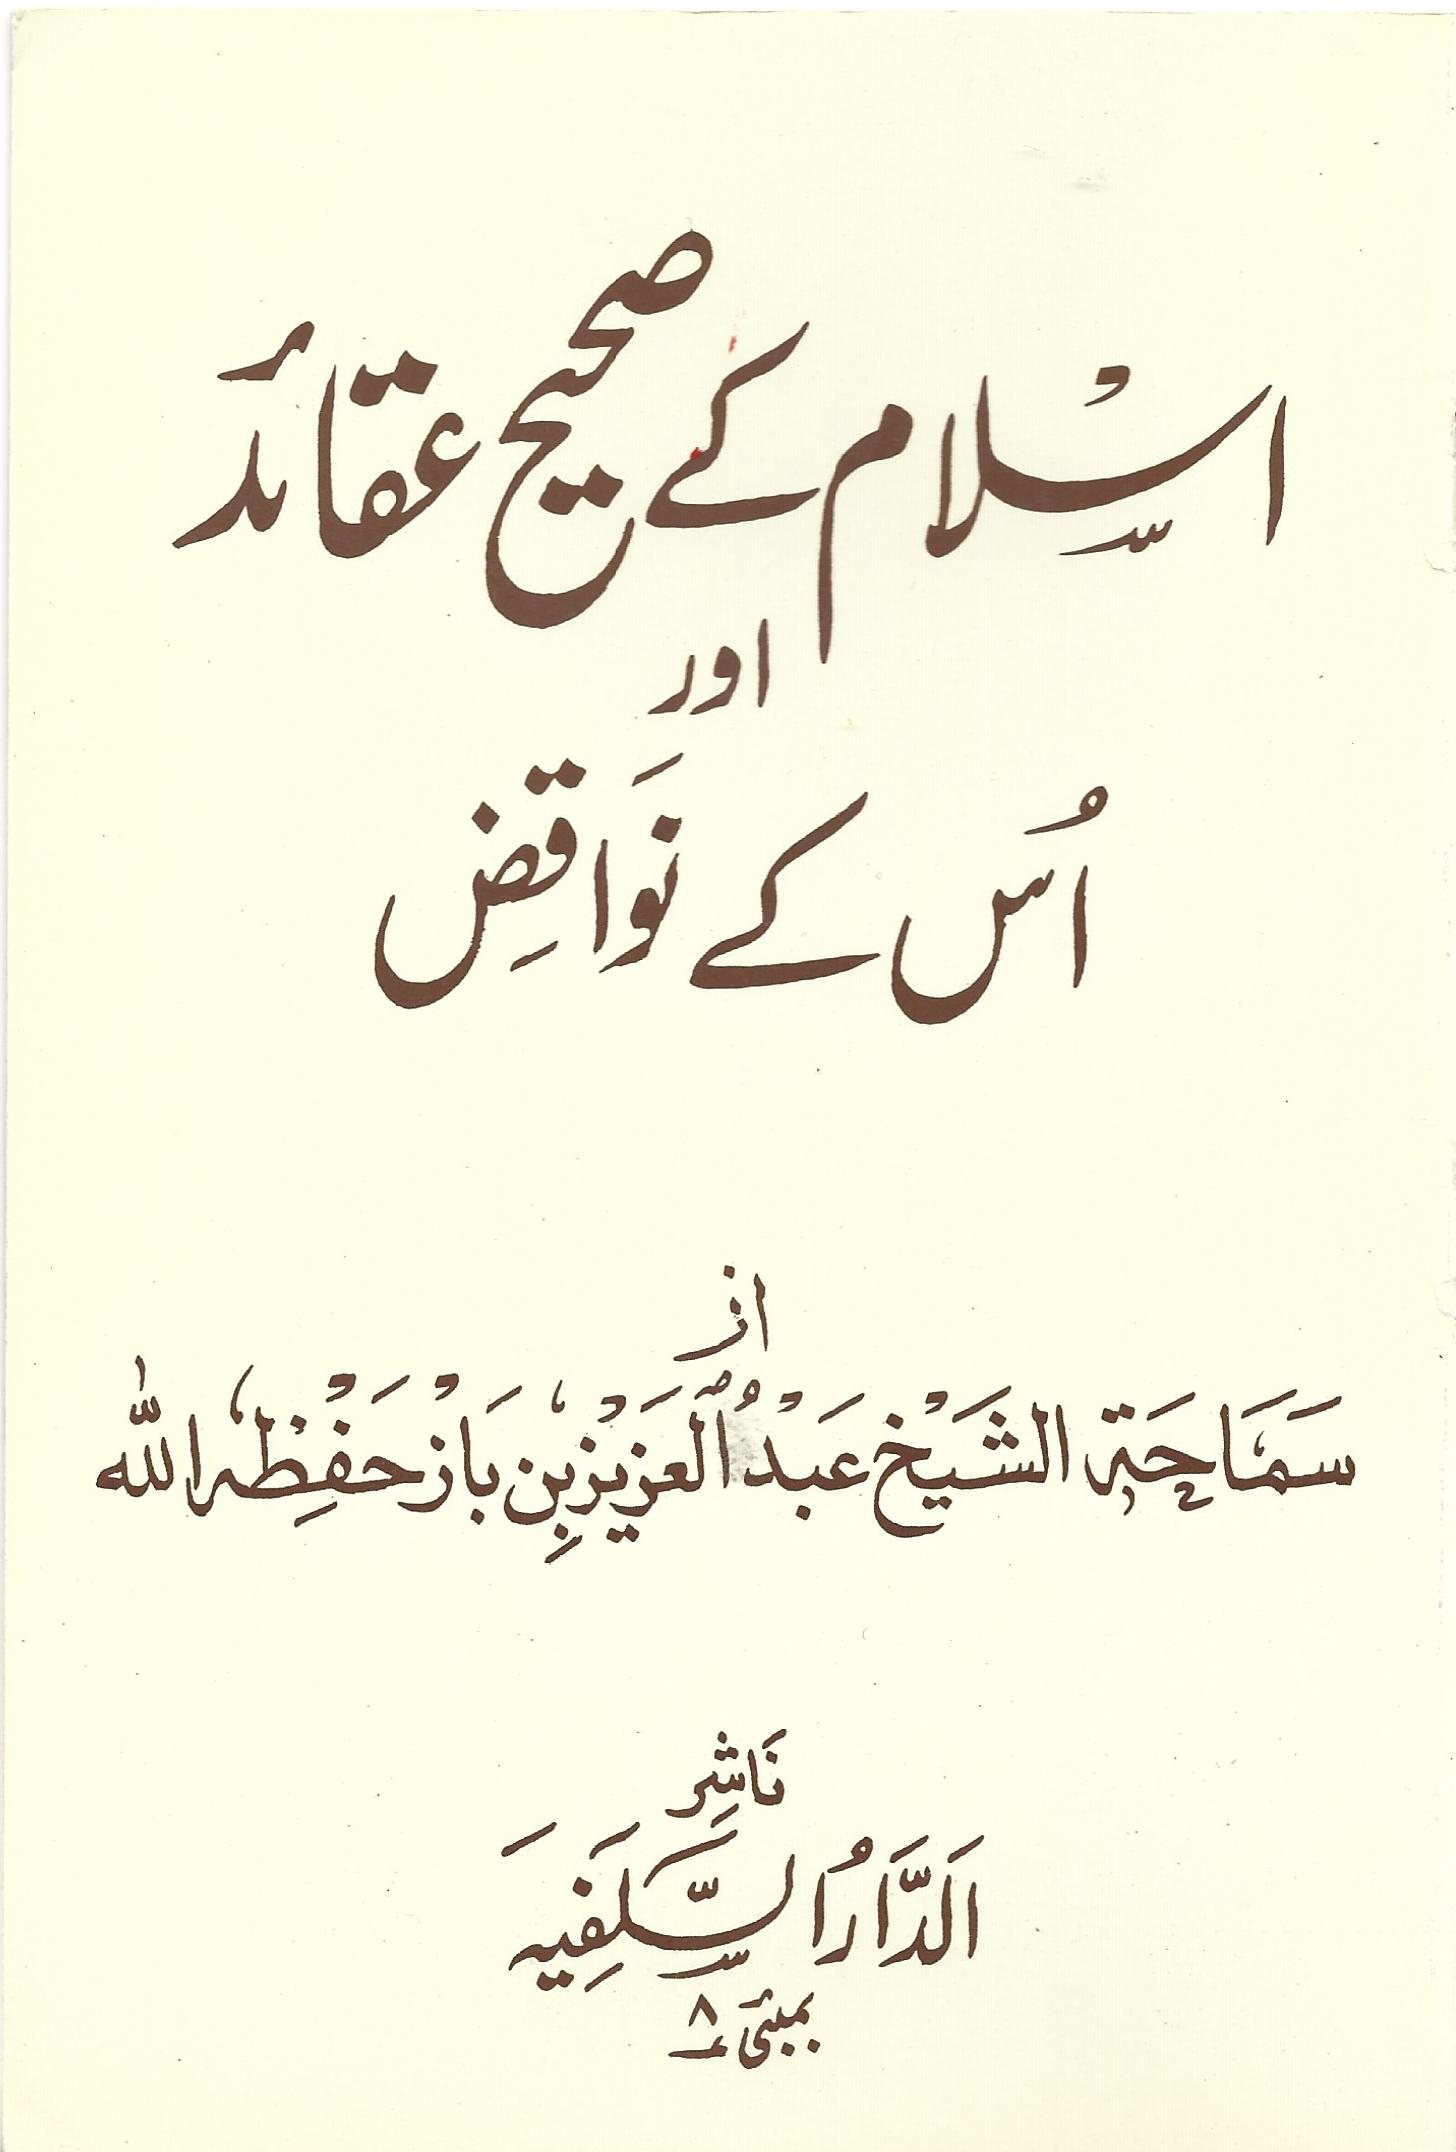 اسلام کے صحیح عقائد
اور
اُس کے نَوَاقِض
از
سَمَاحَة الشَیْخ عَبْدُ الْعَزِیْزبِن بَازْ حَفْظِہُ اللہ
نَاشِر
اَلدَّارُ السَّلَفِیَہ
بمبئی ۸